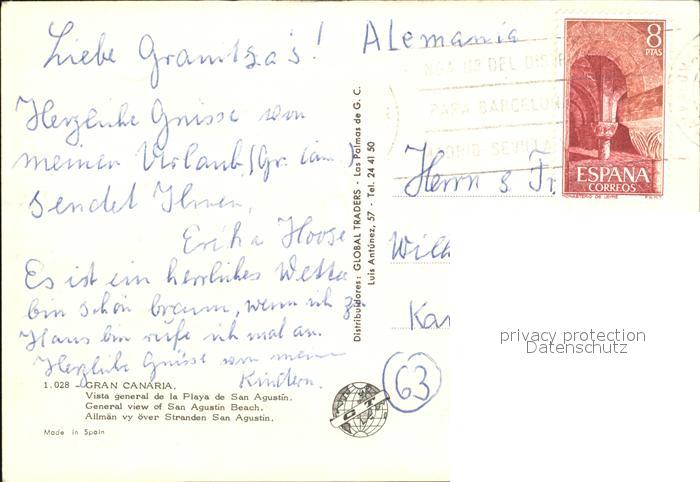 Liebe Granitza's!
Herzliche Grüsse von
meinen Urlaub (Gr. Can.)
sendet Ihnen,
Erika Hoose
Es ist ein herrliches Wetter
bin schön braun, wenn ich zu
Haus bin rufe ich mal an.
Herzliche Grüsse von meinen
Kindern.
1.028 - GRAN CANARIA.
Vista general de la Playa de San Agustín.
General view of San Agustin Beach.
Allmän vy över Stranden San Agustin.
Made in Spain
Distribuidores: GLOBAL TRADERS - Las Palmas de G. C.
Luis Antúnez, 57 - Tel. 24 41 50
Alemania
DEL
PARA BARCELONA
MADRID SEVILLA
8
PTAS
ESPAÑA
CORREOS
MONASTERIO DE LEYRE
F.N.M.T.
Herrn & Fr.
Wilh
Kar
63
privacy protection
Datenschutz